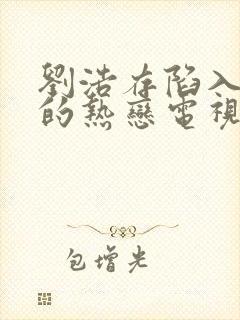 劉浩存陷入
的熱戀電視
包增光